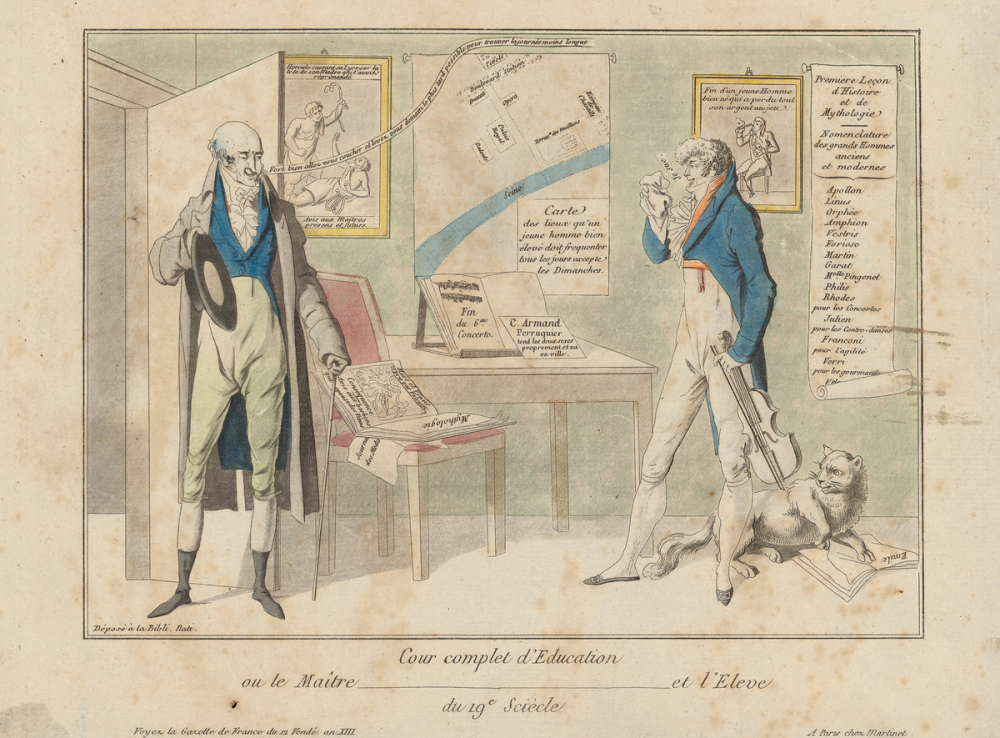 Hercule cassant sa Lyre sur la
tete de son Maître qui l'avait
réprimandé
Avis aux Maîtres
presens et futurs.
Fort bien allez vous coucher et levez vous demain le plus tard possible pour trouver la journée moins longue
Boulevard Italien
Opera
Palais
Royal
Seine
Carte
des lieux qu'un
jeune homme bien
élevé doit frequenter
tous les jours accepté
les Dimanches.
Fin
du 6me
Concerto.
C. Armand
Perruquier
tond les deux sexes
proprement et va
en ville.
Mythologie
Journal
des Modes
je sue
Fin d'un jeune Homme
bien né qui a perdu tout
son argent au jeu.
Premiere Leçon
d'Histoire
et de
Mythologie
Nomenclature
des grands Hommes
anciens
et modernes
Apollon
Linus
Orphée
Amphion
Vestris
Forioso
Martin
Garat
Melle Pingenet
Philis
Rhodes
pour les Concertos
Julien
pour les Contro-danses
Franconi
pour l'agilité
Verri
pour les gourmands
Emile
Déposé à la Bibli. Natî.
Cour complet d'Education
ou le Maître et l'Eleve
du 19e Sciècle
Voyez la Gazette de France du 12 Vendé. an XIII
A Paris chez Martinet.